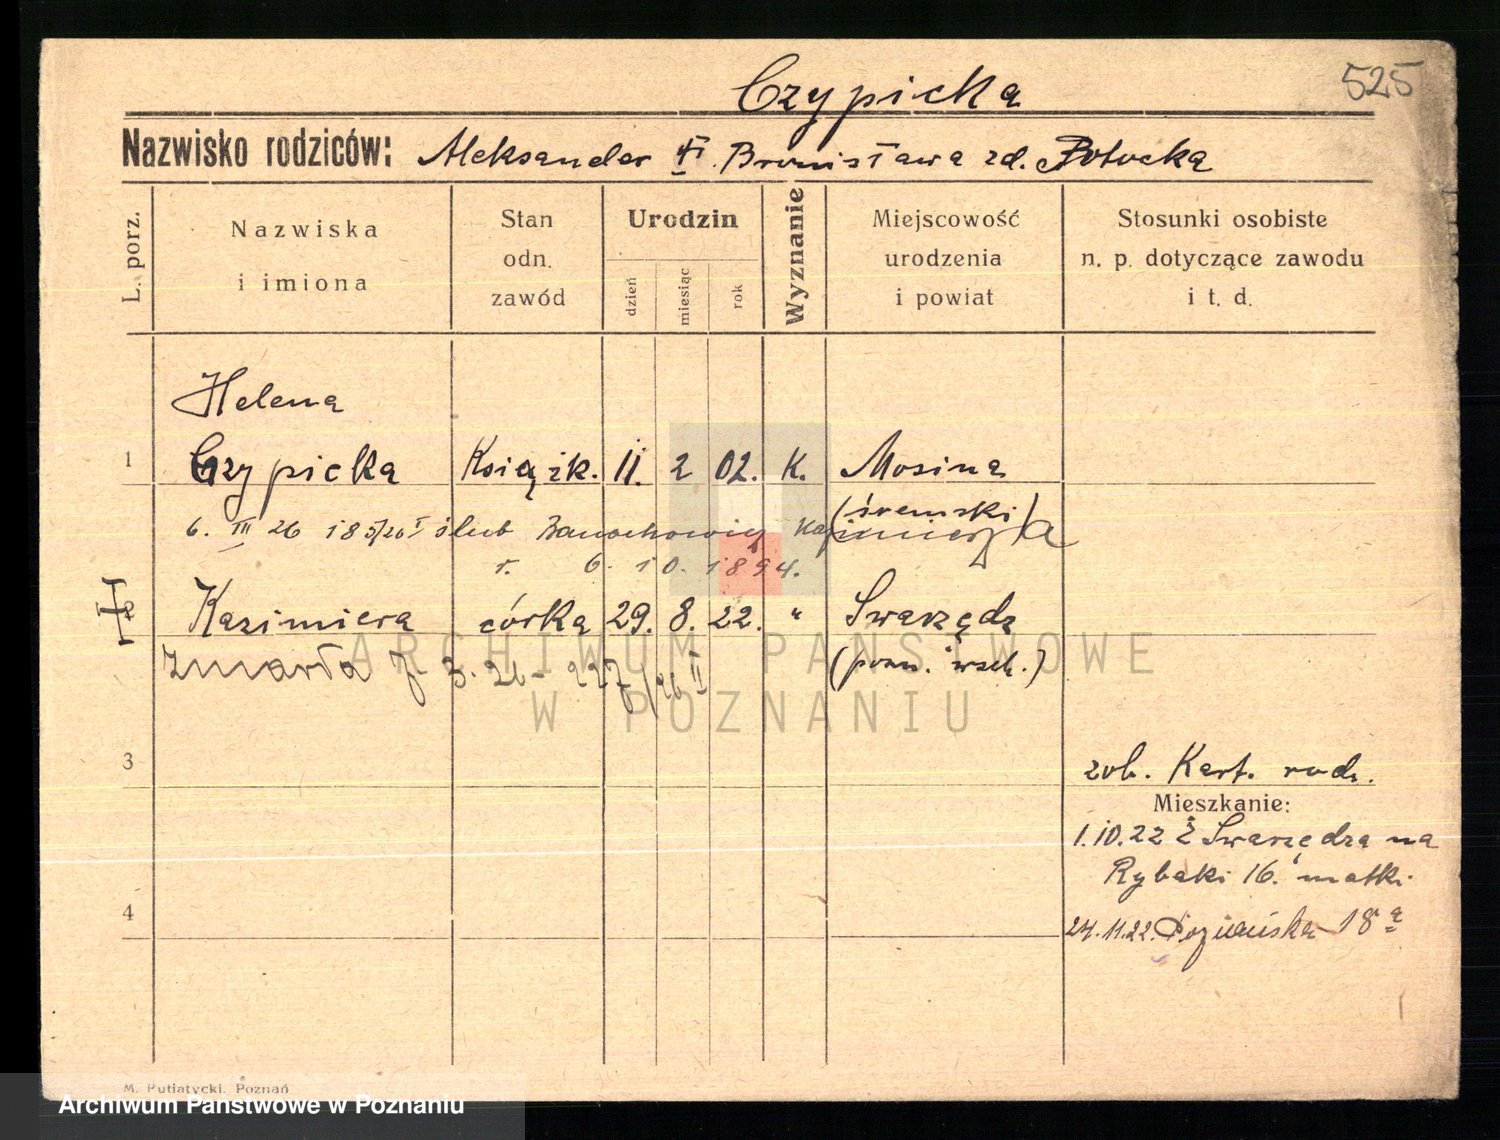 Czypicka
525
Nazwisko rodziców: Aleksander i Bronisława zd. Potocka
L. porz.
Nazwiska
i imiona
Stan
odn.
zawód
Urodzin
dzień
miesiąc
rok
Wyznanie
Miejscowość
urodzenia
i powiat
Stosunki osobiste
n. p. dotyczące zawodu
i t. d.
Helena
1 Czypicka Książk. 11. 2 02. K. Mosina
(śremski)
6. III 26 185/26 I ślub Kazimierza
r. 6. 10. 1894.
Kazimiera córka 29. 8. 22. " Swarzędz
zmarła 3. 26 - 227/26 II (pozn. wsch.)
ARCHIWUM PAŃSTWOWE
W POZNANIU
3
zob. Kart. rodz.
Mieszkanie:
1.10.22 z Swarzędza na
Rybaki 16. matki
4
24.11.22. 18a
M. Putiatycki, Poznań
Archiwum Państwowe w Poznaniu